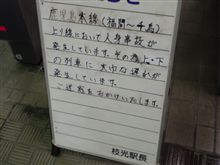 鹿児島本線(福間～千鳥)
上り線において人身事故が
発生しています。その為上・下
の列車に大巾な遅れが
発生しています。
ご迷惑をおかけいたします。
枝光駅長